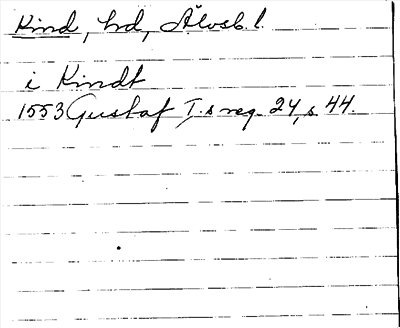 Kind, hd, Älvsb. l.
i Kindt
1553 Gustaf I.s reg. 24, s 44.